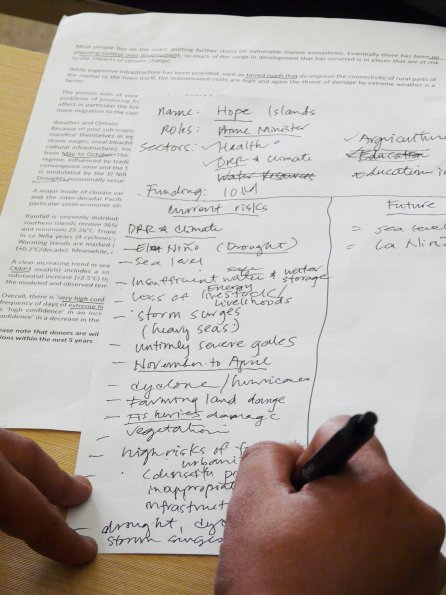 Most people live on the coast, putting further stress on vulnerable marine ecosystems. Essentially there has been no
planning control over development, so much of the surge in development that has occurred is in places that are at risk
to the impacts of climate change.
While expensive infrastructure has been provided, such as tarred roads that do improve the connectivity of rural parts of
the capital to the town itself, the maintenance costs are high and again the threat of damage by extreme weather is a
factor.
The porous soils of your
problems of producing fo
affect in particular the live
more migration to the cap
Weather and Climate
Because of your sub-tropic
manifest themselves in e
storm surges, coral bleachi
cultural infrastructure). You
from May to October. The
regime, influenced by trade
convergence zone and the S
is modulated by the El Niñ
Droughts occasionally occur
A major mode of climate var
and the inter-decadal Pacif
particular socio-economic si
Rainfall is unevenly distribut
southern islands receive 365
and minimum 25-26°C.
in La Niña years (4 cyclones
Warming trends are marked
(+0.2°C/decade). Meanwhile,
A clear increasing trend in sea
CMIP3 models) includes a sm
substantial increase (>2.5°C) b
the modeled and observed ten
Overall, there is 'very high conf
frequency of days of extreme h
is 'high confidence' in an incr
confidence' in a decrease in the
ease note that donors are will
ions within the next 5 years
Name: Hope Islands
Roles: Prime Minister
Sectors: ✓ Health
✓ DRR & climate
Water Resources
Funding: 10M
✓ Argriculture
Education
Education in
Current risks
DRR & climate
- El Niño (Drought)
- Sea level
- Insufficient safe water & water storage
Energy
- loss of livestock/
livelihoods
- storm surges
(heavy seas)
- untimely severe gales
- November to April
- cyclone/hurricanes
- Farming land damge
- Fisheries damage
- vegetation
- high risks of
urbani
inappropriat
infrastruct
- drought, cy
storm surges
Future
= Sea level
= La Niñ